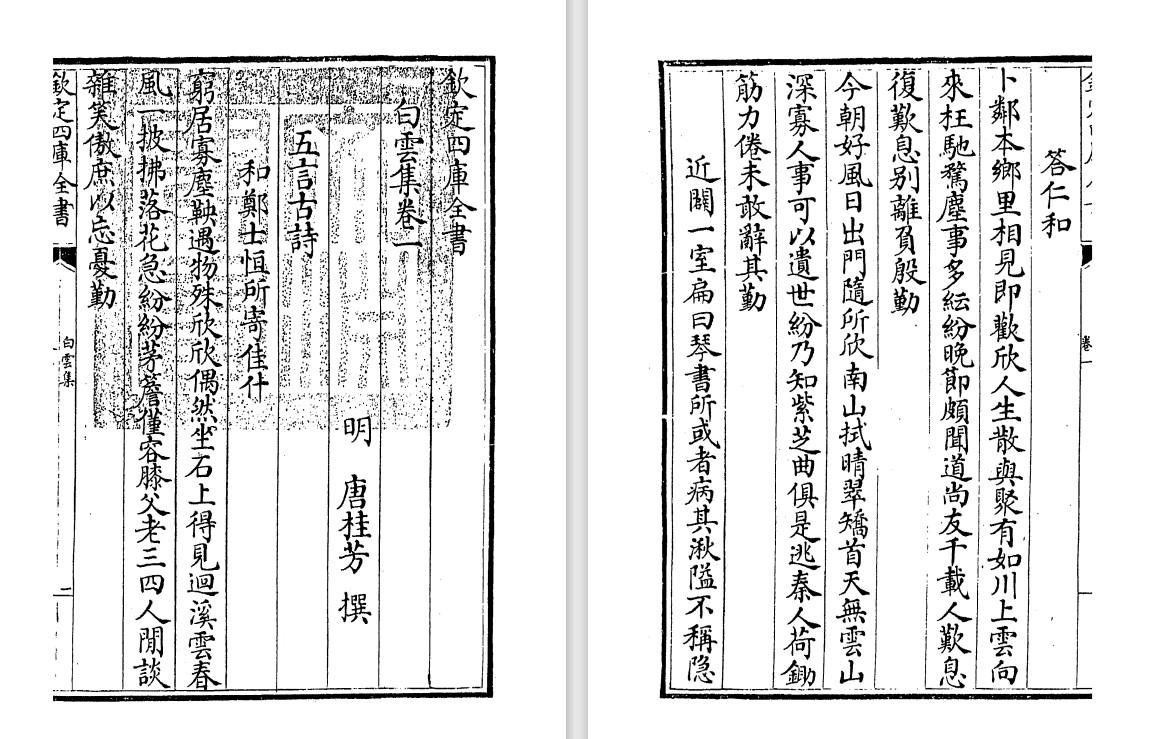 欽定四庫全書
白雲集卷一
明 唐桂芳 撰
五言古詩
和鄭士恒所寄佳什
窮居寡塵鞅遇物殊欣欣偶然坐石上得見迴溪雲春
風一披拂落花急紛紛茅簷僅容膝父老三四人閒談
雜笑傲庶以忘憂勤
欽定四庫全書 白雲集
答仁和
卜鄰本鄉里相見即歡欣人生散與聚有如川上雲向
來枉馳騖塵事多紜紛晚節頗聞道尚友千載人歎息
復歎息别離負殷勤
今朝好風日出門隨所欣南山拭晴翠矯首天無雲山
深寡人事可以遺世紛乃知紫芝曲俱是逃秦人荷鋤
筋力倦未敢辭其勤
近闢一室扁曰琴書所或者病其湫隘不稱隐